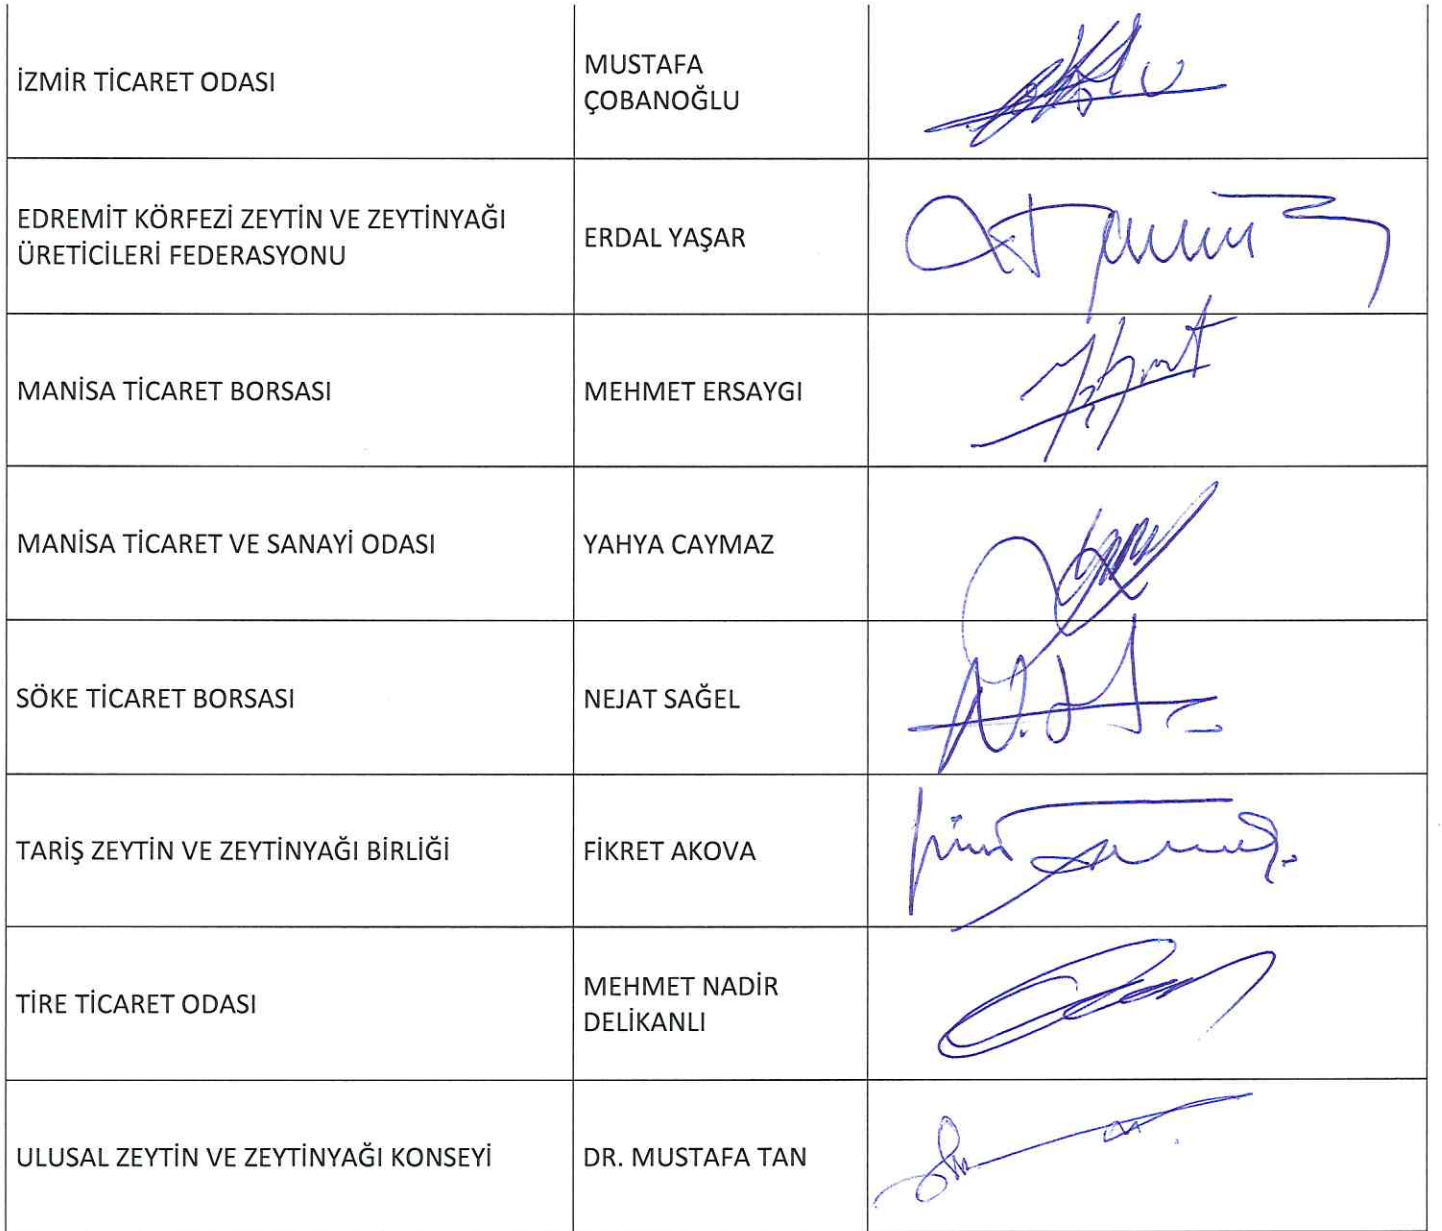 İZMİR TİCARET ODASI
MUSTAFA
ÇOBANOĞLU
EDREMİT KÖRFEZİ ZEYTİN VE ZEYTİNYAĞI
ÜRETİCİLERİ FEDERASYONU
ERDAL YAŞAR
MANİSA TİCARET BORSASI
MEHMET ERSAYGI
MANİSA TİCARET VE SANAYİ ODASI
YAHYA CAYMAZ
SÖKE TİCARET BORSASI
NEJAT SAĞEL
TARİŞ ZEYTİN VE ZEYTİNYAĞI BİRLİĞİ
FİKRET AKOVA
TİRE TİCARET ODASI
MEHMET NADİR
DELİKANLI
ULUSAL ZEYTİN VE ZEYTİNYAĞI KONSEYİ
DR. MUSTAFA TAN